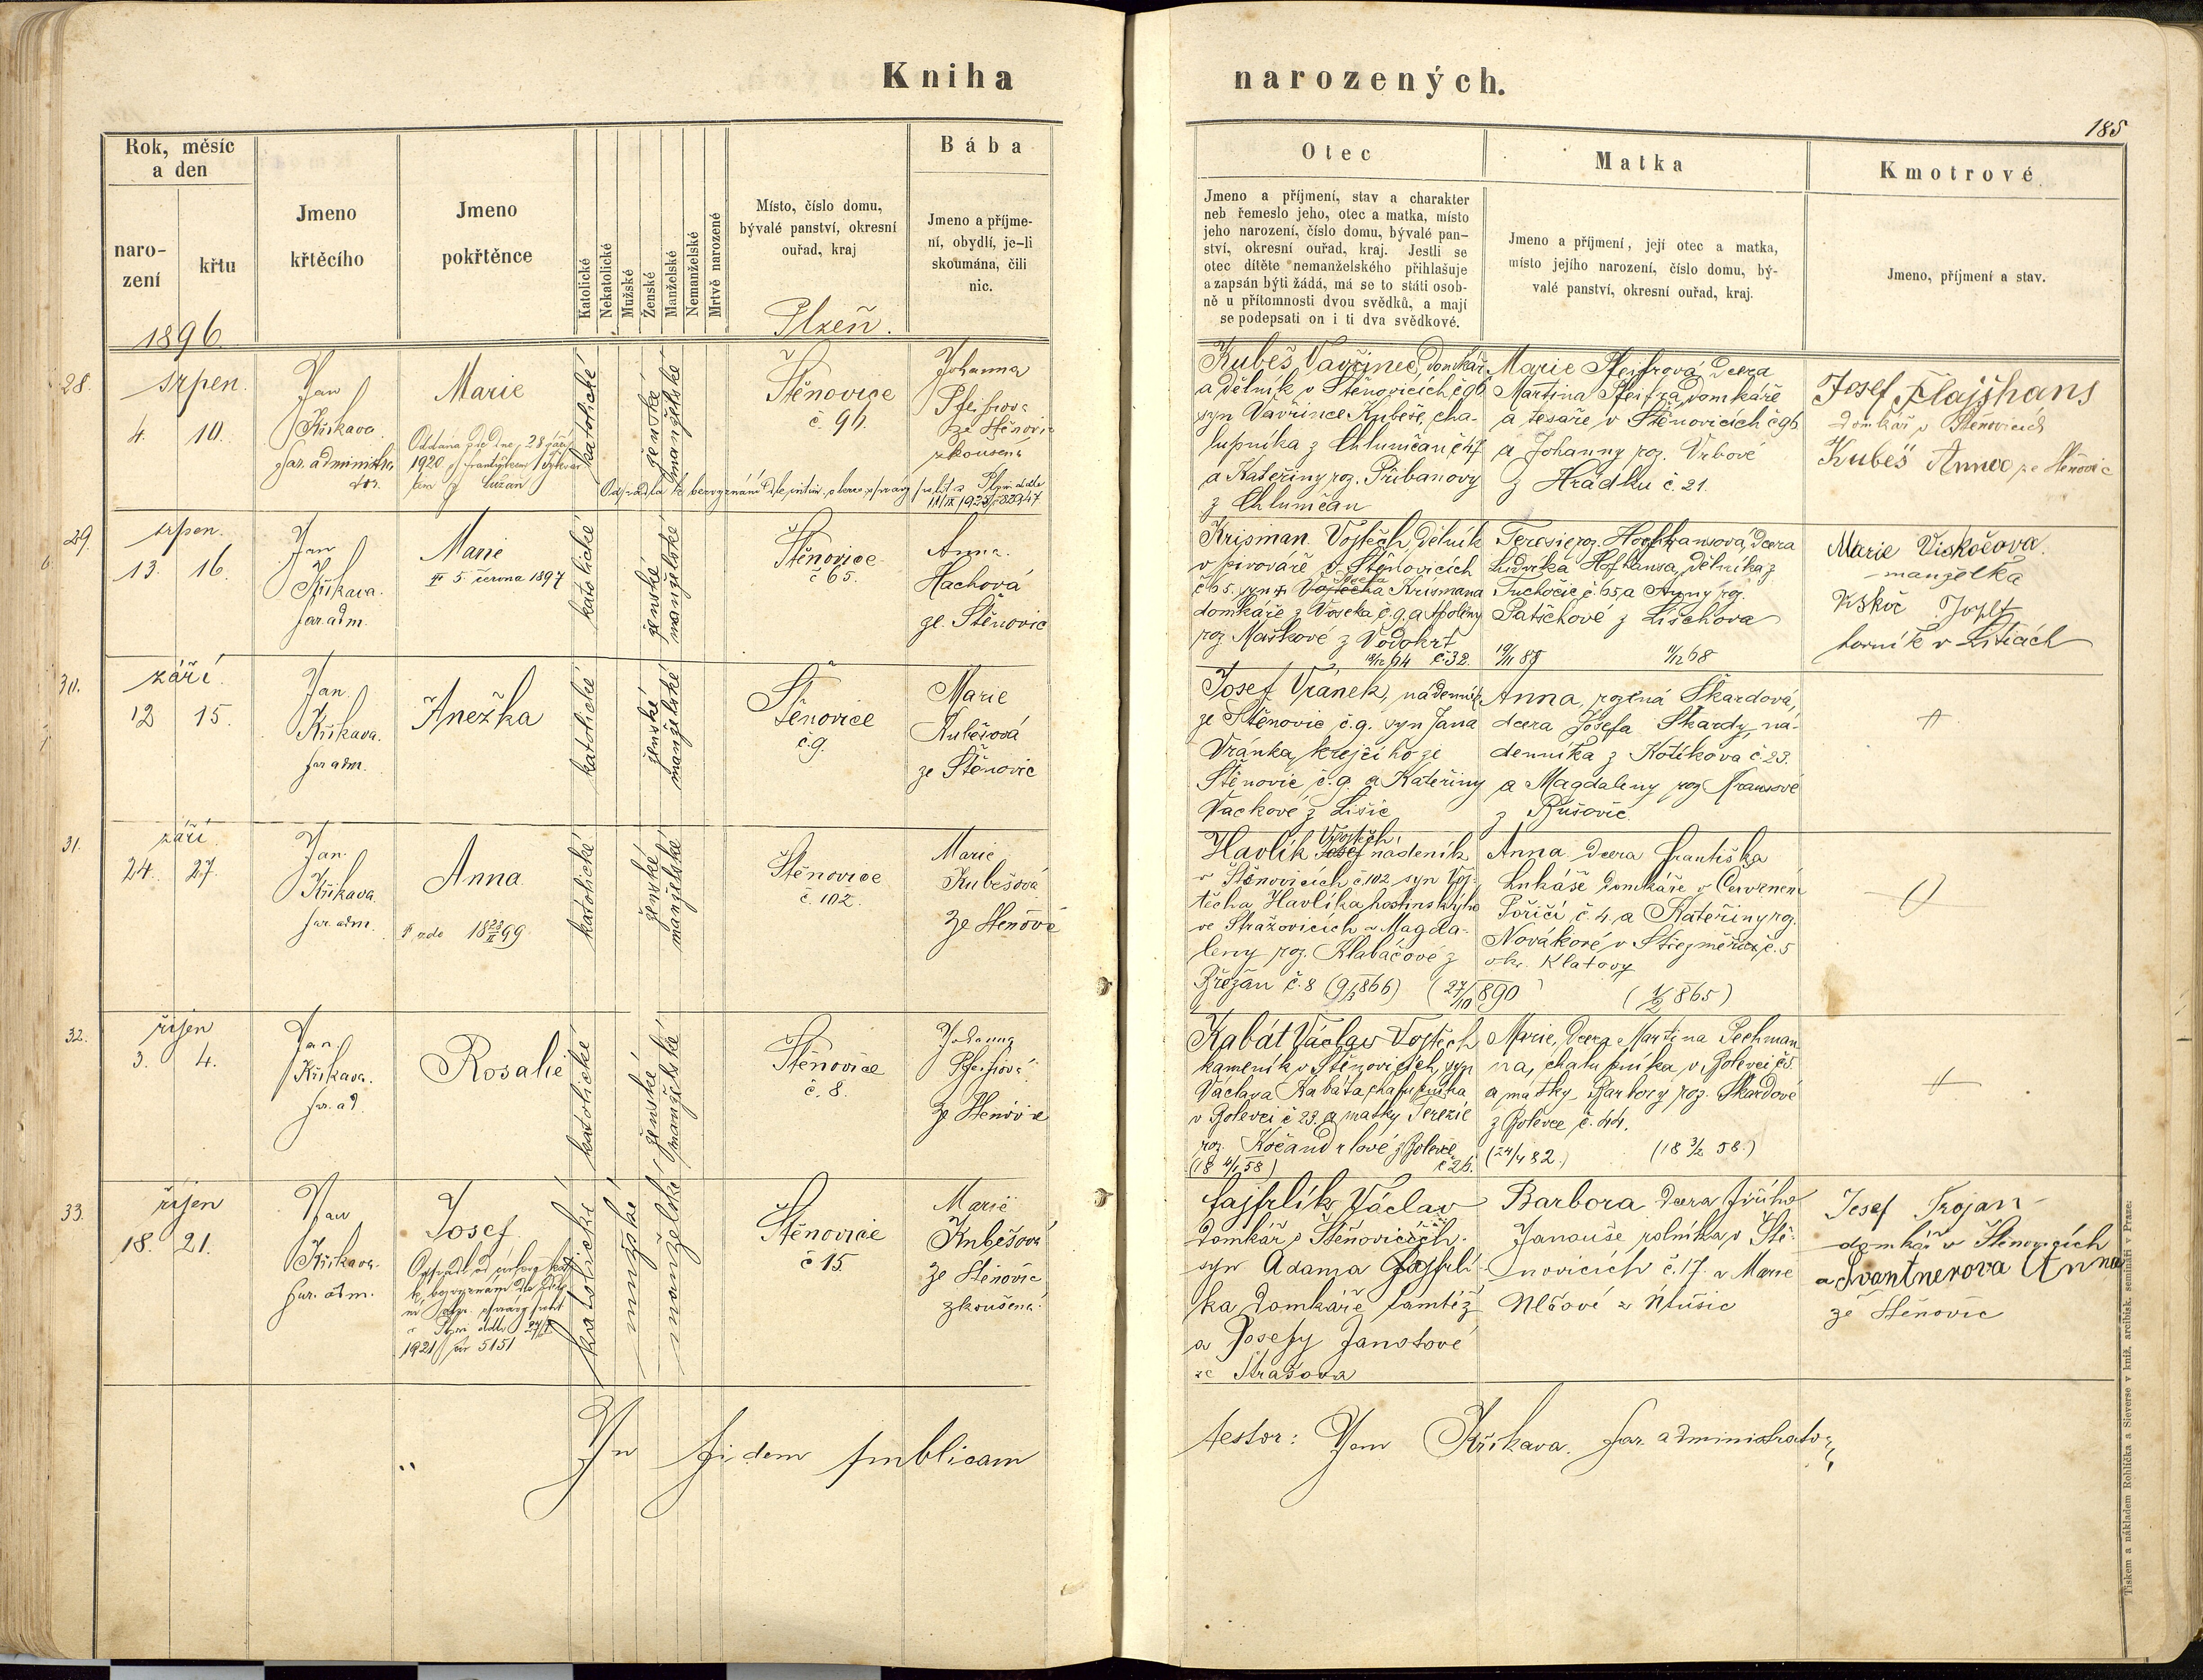 Kniha narozených.
185
Rok, měsíc a den
naro-
zení
křtu
Jmeno
křtěcího
Jmeno
pokřtěnce
Katolické
Nekatolické
Mužské
Ženské
Manželské
Nemanželské
Mrtvě narozené
Místo, číslo domu,
bývalé panství, okresní
ouřad, kraj
Bába
Jmeno a příjme-
ní, obydlí, je-li
skoumána, čili
nic.
Otec
Jmeno a příjmení, stav a charakter
neb řemeslo jeho, otec a matka, místo
jeho narození, číslo domu, bývalé pan-
ství, okresní ouřad, kraj. Jestli se
otec dítěte nemanželského přihlašuje
a zapsán býti žádá, má se to státi osob-
ně u přítomnosti dvou svědků, a mají
se podepsati on i ti dva svědkové.
Matka
Jmeno a příjmení, její otec a matka,
místo jejího narození, číslo domu, bý-
valé panství, okresní ouřad, kraj.
Kmotrové
Jmeno, příjmení a stav.
1896.
Plzeň.
28.
srpen.
4. 10.
Jan
Křikava
far. administra
tor.
Marie
Oddána zde dne 28 září
1920 s Františkem
z Lužan
katolické
ženské
manželské
Štěnovice
č. 96.
Johanna
Pfeifrova
ze Štěnovic
zkoušená
Kubeš Vavřinec, domkář
a dělník v Štěnovicích č 96
syn Vavřince Kubeše, cha-
lupníka z Chlumčan
a Kateřiny roz. Přibanovy
z Chlumčan
Marie Pfeifrová, dcera
Martina Pfeifra, domkáře
a tesaře v Štěnovicích č 96
a Johanny roz. Vrbové
z Hrádku č. 21.
Josef Flajšhans
domkář v Štěnovicích
Kubeš Anna ze Štěnovic
29.
srpen.
13. 16.
Jan
Křikava.
far. adm.
Marie
5. června 1897
katolické
ženské
manželské
Štěnovice
č 65.
Anna
Hachová
ze Štěnovic
Krisman Vojtěch, dělník
v pivováře v Štěnovicích
č 65. syn Vojtěcha Krismana
domkáře z Voseka č. 9. a Apoleny
roz. Maškové z Vodokrt
č 32.
Teresie roz. Hoffhansová, dcera
Ludvíka Hofhansa, dělníka z
č. 65, a Anny roz.
z Lišchova
Marie Viskočova.
manželka
Josef
horník v Liticích
30.
září
12 15.
Jan
Křikava.
far adm.
Anežka
katolické
ženské
manželské
Štěnovice
č. 9.
Marie
Kubešová
ze Štěnovic
Josef Vránek, nádenník
ze Štěnovic č. 9. syn Jana
Vránka, krejčího ze
Štěnovic č. 9 a Kateřiny
Vackové z Lišic
Anna, rozená Škardová,
dcera Josefa Škardy, ná-
denníka z Kotíkova č 23.
a Magdaleny roz.
z
31.
září
24. 27.
Jan
Křikava
far. adm.
Anna
zde 18 23/II 99
katolické
ženské
manželské
Štěnovice
č. 102.
Marie
Kubešová
ze Štěnovic
Havlík Josef Vojtěch nádeník
v Štěnovicích č. 102 syn Voj-
těcha Havlíka hostinského
ve Stražovicích a Magda-
leny roz. Klabáčové z
Břežan č. 8 (9/3 866) (27/10 890
Anna dcera Františka
Lukáše domkáře v Červeném
Poříčí č. 4 a Kateřiny roz.
Novákové v č. 5
okr. Klatovy
(1/2 865)
32.
říjen
3. 4.
Jan
Křikava.
far. ad.
Rosalie
katolické
ženské
manželské
Štěnovice
č. 8.
Johanna
Pfeifrová
ze Štěnovic
Kabát Václav Vojtěch
kameník v Štěnovicích, syn
Václava Kabáta, chalupníka
v Bolevci č 23. a matky Terezie
roz. z Bolevce
č 26.
Marie, dcera Martina Pechman
na, chalupníka v Bolevci č 5
a matky Barbory roz. Škardové
z Bolevce č. 44.
33.
říjen
18. 21.
Jan
Křikava.
far. adm.
Josef
1921 5151
katolické
mužské
manželské
Štěnovice
č 15.
Marie
Kubešová
ze Štěnovic
zkoušená
Fajfrlík Václav
domkář v Štěnovicích.
syn Adama Fajfrlí-
ka domkáře tamtéž
a Josefy Janotové
ze Strašova
Barbora dcera Jiřího
Janouše rolníka v Ště-
novicích č. 17. a Marie
Josef Trojan
domkář v Štěnovicích
a Švantnerova Anna
ze Štěnovic
In fidem publicam
testor: Jan Křikava. far. administrator
Tiskem a nákladem Rohlíčka a Sieverse v kniž. arcibisk. semináři v Praze.